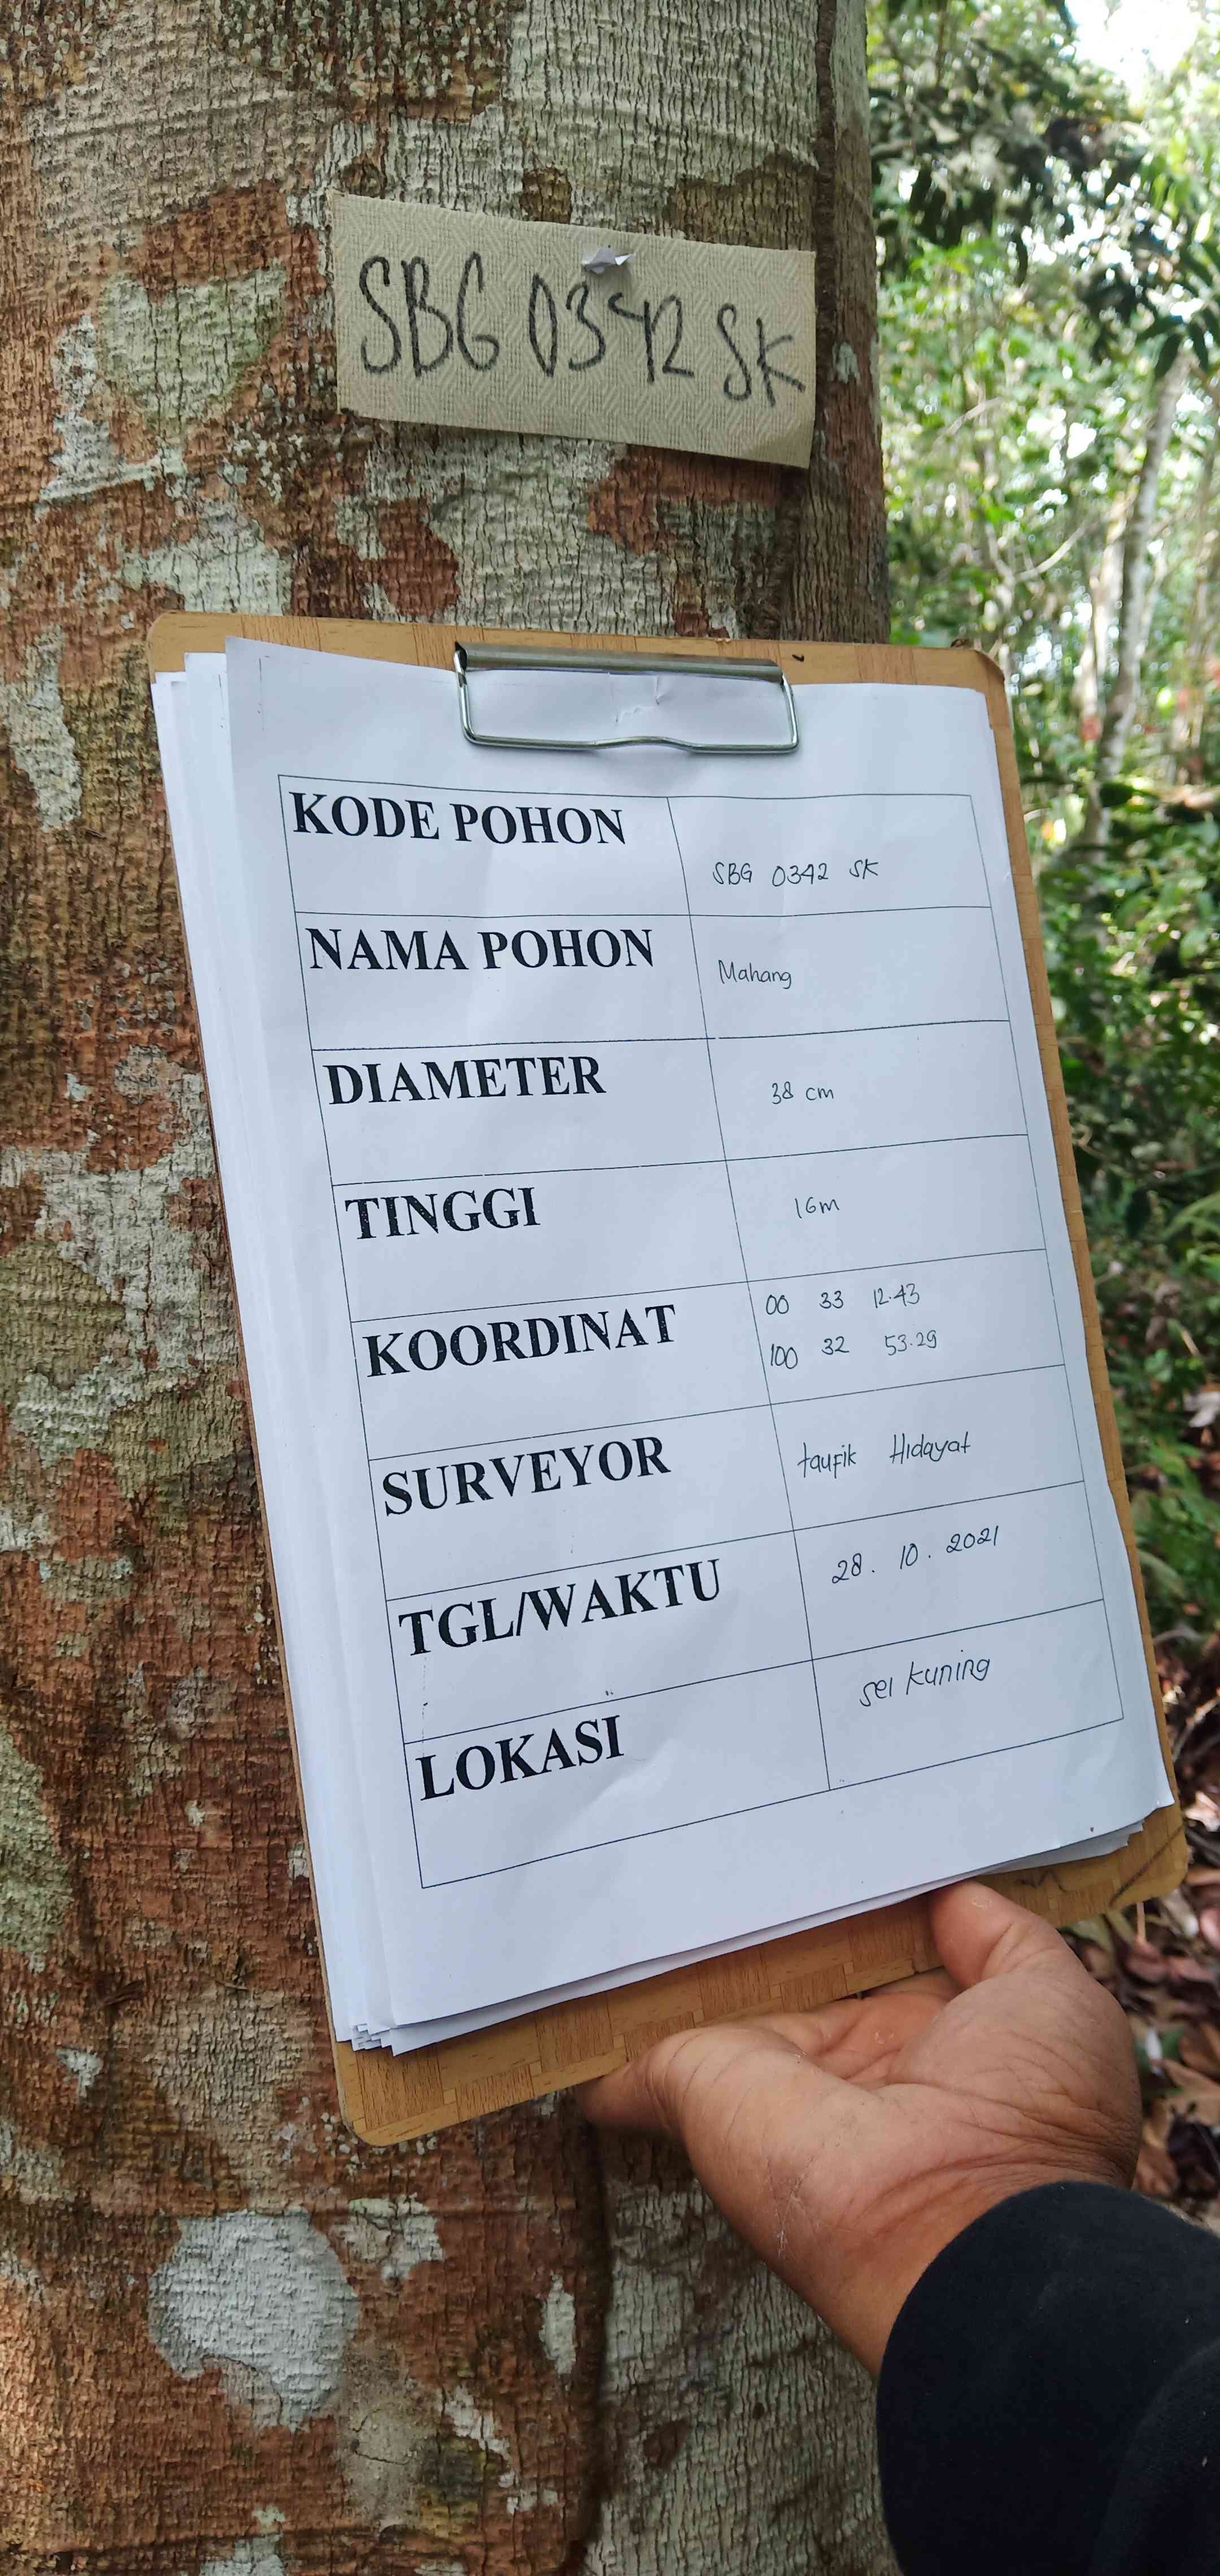 SBG 0342 SK
KODE POHON
SBG 0342 SK
NAMA POHON
Mahang
DIAMETER
38 cm
TINGGI
16m
KOORDINAT
00 33 12.43
100 32 53.29
SURVEYOR
taufik Hidayat
TGL/WAKTU
28. 10. 2021
LOKASI
sei kuning